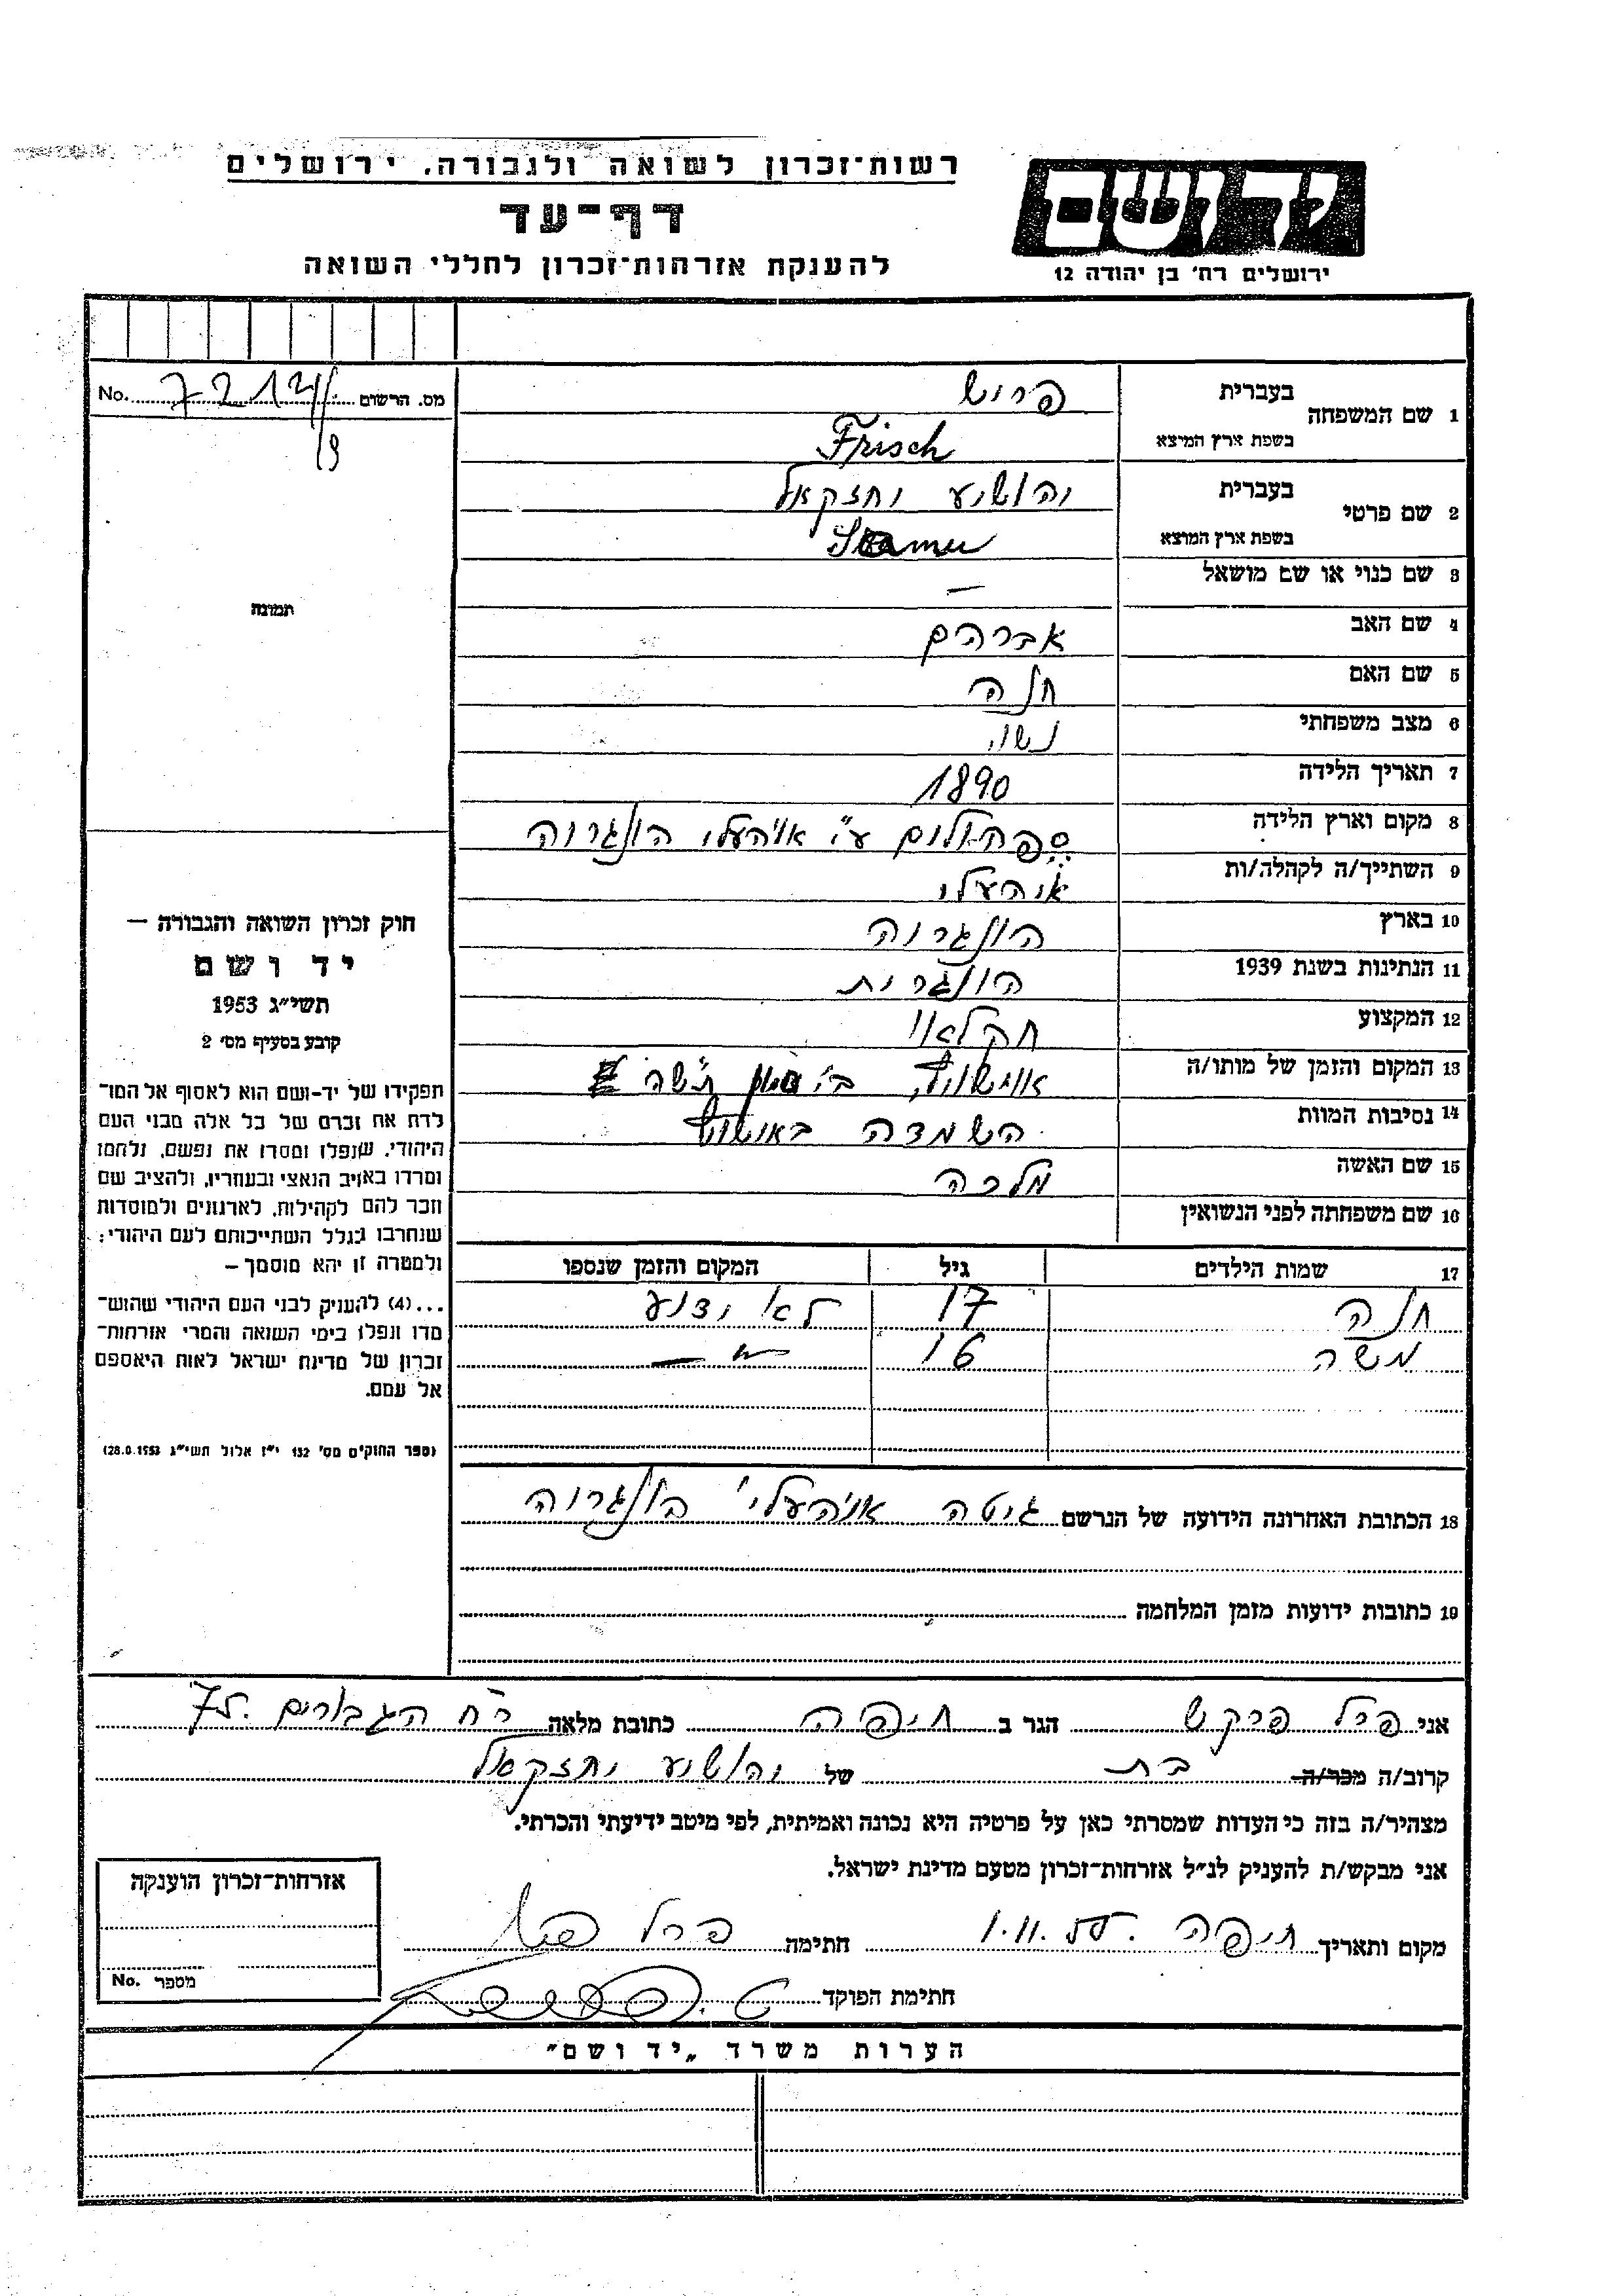 רשות־זכרון לשואה ולגבורה, ירושלים
דף־עד
להענקת אזרחות־זכרון לחללי השואה
יד ושם
ירושלים רח׳ בן יהודה 12
No. 7212/ מס. הרשום
19
1 שם המשפחה בעברית פריש
בשפת ארץ המוצא Frisch
2 שם פרטי בעברית יהושוע יחזקאל
בשפת ארץ המוצא
3 שם כנוי או שם מושאל —
4 שם האב אברהם
5 שם האם חנה
6 מצב משפחתי נשוי
7 תאריך הלידה 1890
8 מקום וארץ הלידה ע״י אויהעלי הונגריה
9 השתייך/ה לקהלה/ות אויהעלי
10 בארץ הונגריה
11 הנתינות בשנת 1939 הונגרית
12 המקצוע חקלאי
13 המקום והזמן של מותו/ה אוישוויץ ב׳ סיון תש״ד
14 נסיבות המוות השמדה באושויץ
15 שם האשה מלכה
16 שם משפחתה לפני הנשואין
17 שמות הילדים גיל המקום והזמן שנספו
חנה 17 לא ידוע
משה 16 — " —
18 הכתובת האחרונה הידועה של הנרשם אויהעלי הונגריה
19 כתובות ידועות מזמן המלחמה
תמונה
חוק זכרון השואה והגבורה —
יד ושם
תשי״ג 1953
קובע בסעיף מס׳ 2
תפקידו של יד-ושם הוא לאסוף אל המו־
לדת את זכרם של כל אלה מבני העם
היהודי, שנפלו ומסרו את נפשם, נלחמו
ומרדו באויב הנאצי ובעוזריו, ולהציב שם
וזכר להם לקהילות, לארגונים ולמוסדות
שנחרבו בגלל השתייכותם לעם היהודי;
ולמטרה זו יהא מוסמך —
...(4) להעניק לבני העם היהודי שהוש־
מדו ונפלו בימי השואה והמרי אזרחות־
זכרון של מדינת ישראל לאות היאספם
אל עמם.
(ספר החוקים מס׳ 132 י״ז אלול תשי״ג 28.8.1953)
אני פרל פרקש הגר ב חיפה כתובת מלאה רח הגבורים 75
קרוב/ה מכר/ה בת של יהושוע יחזקאל
מצהיר/ה בזה כי העדות שמסרתי כאן על פרטיה היא נכונה ואמיתית, לפי מיטב ידיעתי והכרתי.
אני מבקש/ת להעניק לנ״ל אזרחות־זכרון מטעם מדינת ישראל.
מקום ותאריך חיפה 1.11.55 חתימה פרל
חתימת הפוקד
אזרחות־זכרון הוענקה
מספר No.
הערות משרד „יד ושם״